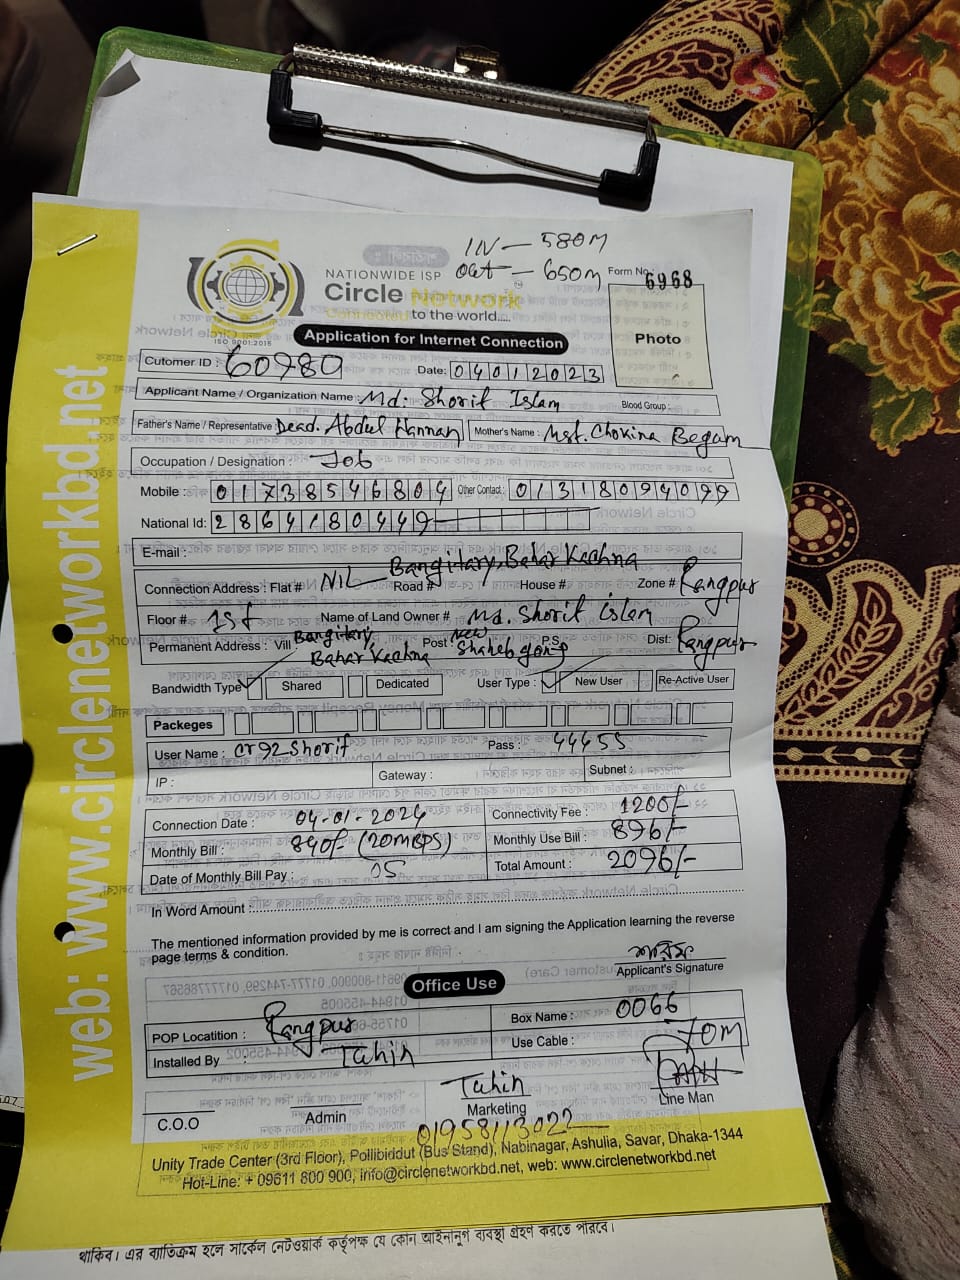 IN - 580M
Out - 650M
Form No: 6968
NATIONWIDE ISP
Circle Network™
to the world....
ISO 9001:2015
Photo
Application for Internet Connection
Cutomer ID : 60780
Date: 04012023
Applicant Name / Organization Name : Md. Shorif Islam
Blood Group :
Father's Name / Representative Dead. Abdul Hannan
Mother's Name : Mst. Chokina Begam
Occupation / Designation : Job
Mobile : 01738546804 Other Contact : 01318094099
National Id: 2864180449
E-mail :
Connection Address : Flat # Nil Road # House # Bangitary, Bahar Kachna Zone # Rangpur
Floor # 1st Name of Land Owner # Md. Shorif Islam
Permanent Address : Vill Bangitary, Bahar Kachna Post : New Shahebgong P.S. Dist: Rangpur
Bandwidth Type : Shared Dedicated User Type : New User Re-Active User
Packeges
User Name : cr92shorif Pass : 44455
IP : Gateway : Subnet :
Connection Date : 04-01-2024 Connectivity Fee : 1200/-
Monthly Bill : 840/- (20MBPS) Monthly Use Bill : 896/-
Date of Monthly Bill Pay : 05 Total Amount : 2096/-
In Word Amount :
The mentioned information provided by me is correct and I am signing the Application learning the reverse
page terms & condition.
শরিফ
Applicant's Signature
Office Use
POP Locatition : Rangpur Box Name : 0066
Installed By : Tahin Use Cable : 70M
Tahin
C.O.O Admin Marketing Line Man
01958113022
Unity Trade Center (3rd Floor), Pollibiddut (Bus Stand), Nabinagar, Ashulia, Savar, Dhaka-1344
Hot-Line: + 09611 800 900, info@circlenetworkbd.net, web: www.circlenetworkbd.net
web: www.circlenetworkbd.net
থাকিব। এর ব্যতিক্রম হলে সার্কেল নেটওয়ার্ক কর্তৃপক্ষ যে কোন আইনানুগ ব্যবস্থা গ্রহণ করতে পারিবে।